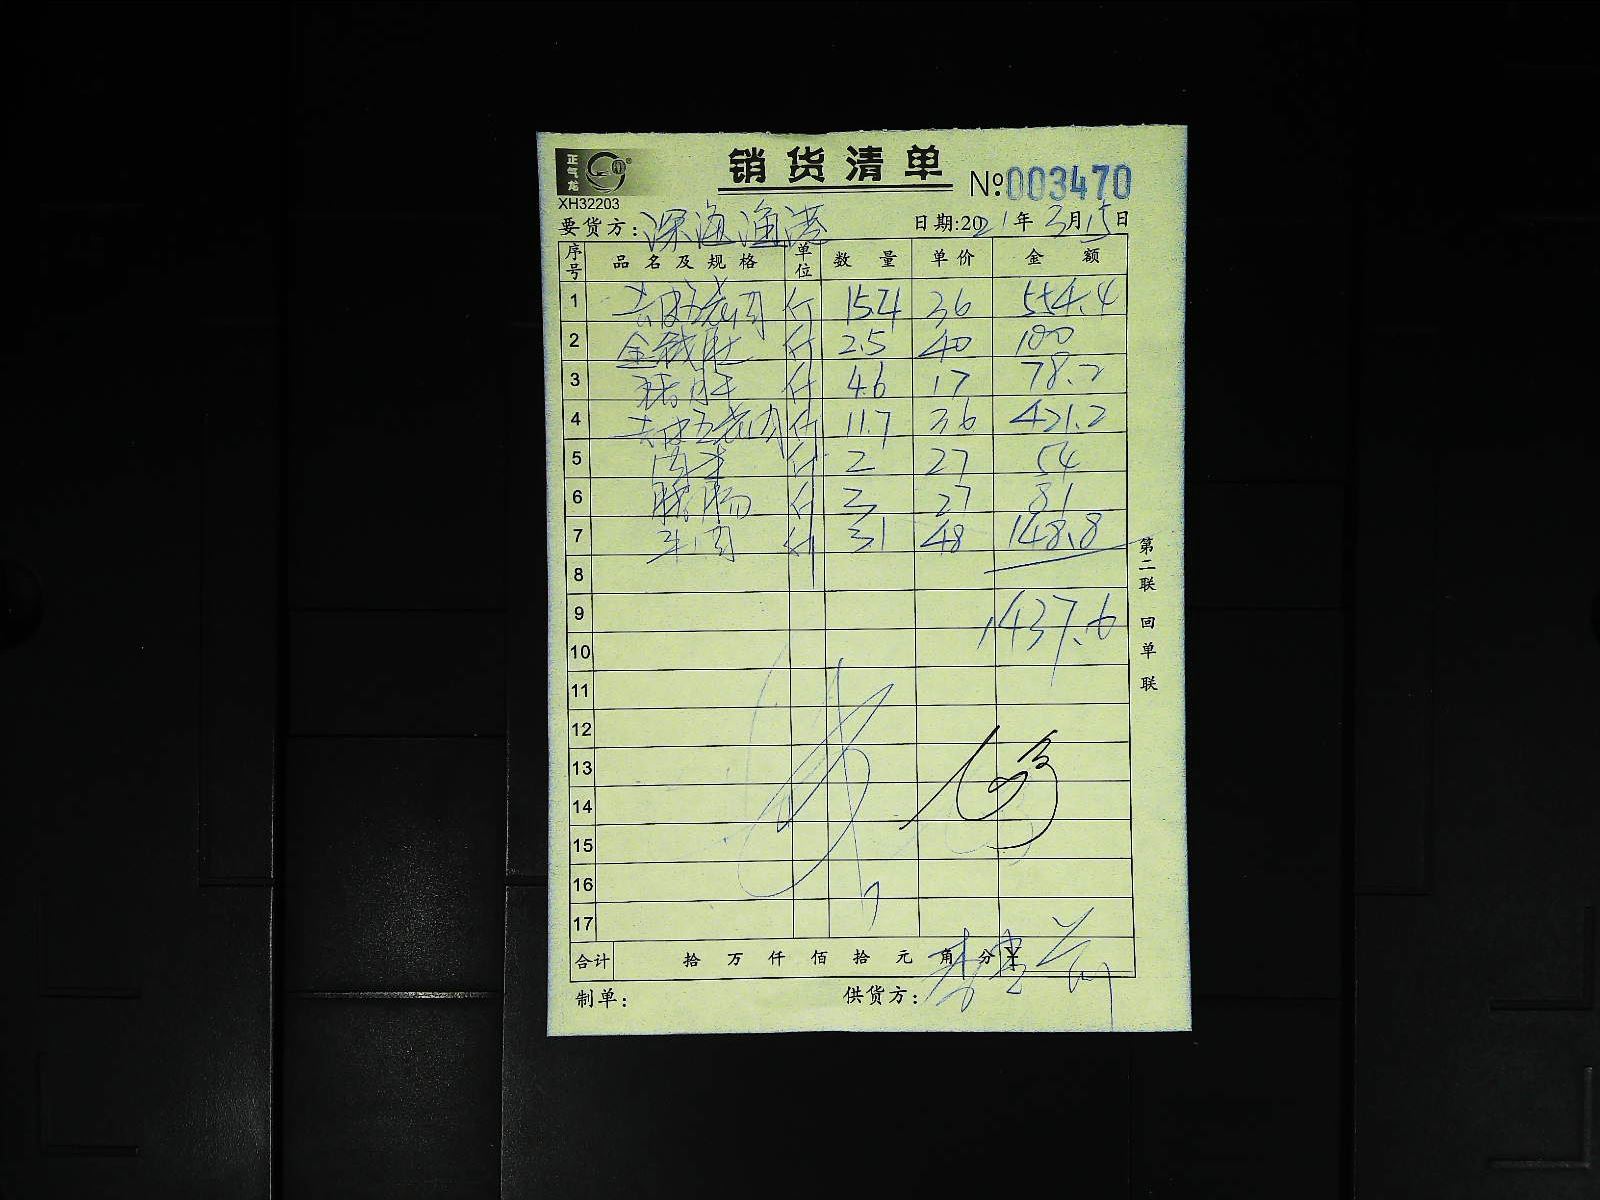 正气龙
销货清单
№003470
XH32203
要货方：深海渔港 日期:2021年3月15日
序号 品名及规格 单位 数量 单价 金额
1 去皮五花肉 斤 15.4 36 554.4
2 金钱肚 斤 2.5 40 100
3 猪肝 斤 4.6 17 78.2
4 去皮五花肉 斤 11.7 36 421.2
5 斤 2 27 54
6 斤 3 27 81
7 牛肉 斤 3.1 48 148.8
8
9 1437.6
10
11
12
13
14
15
16
17
合计 拾万仟佰拾元角分 ¥
制单： 供货方：
第二联 回单联